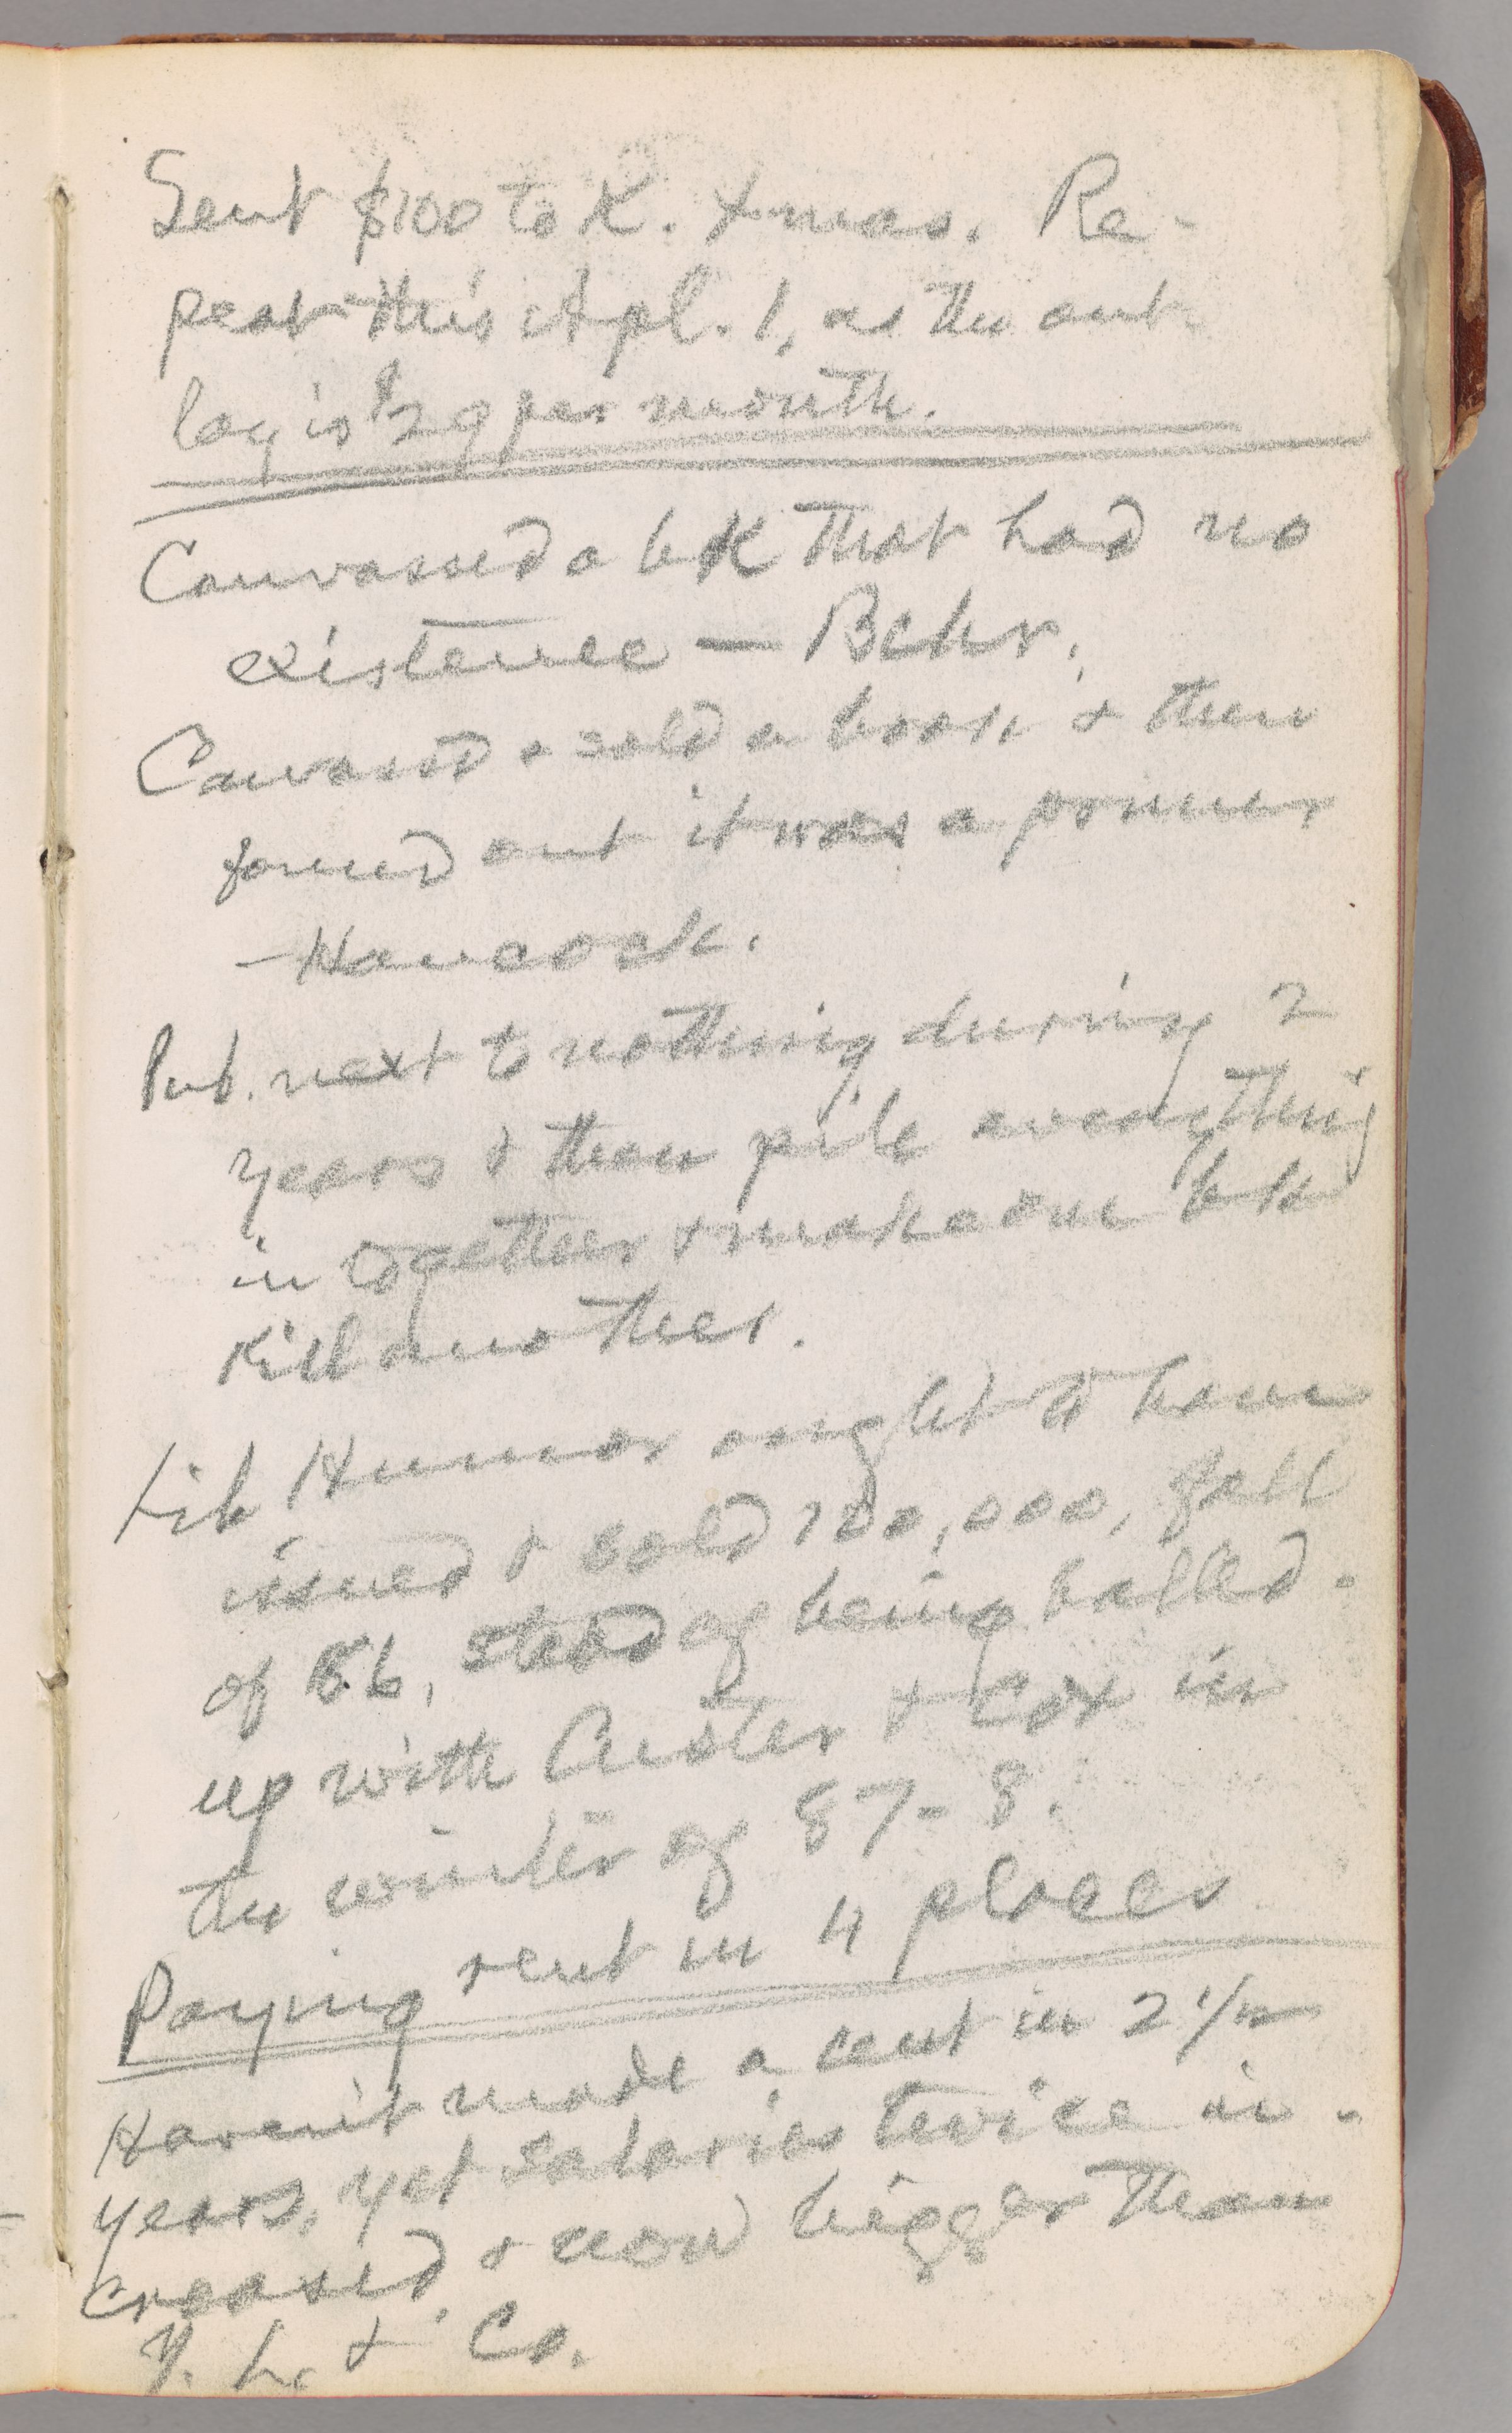 Sent $100 to K. Xmas. Re-
peat this Apl. 1, as the out-
lay is $29 per month.
Canvassed a bk that had no
existence — Bchr.
Canvassd & sold a book & then
found out it was a primer
— Hancock.
Pub. next to nothing during 2
years & then pile everything
in together & make one bk
kill another.
Lib Humor ought to have
issued & sold 100,000, fall
of 86, stead of being balled-
up with Custer & Cox in
the winter of 87-8.
Paying rent in 4 places
Haven't made a cent in 2 1/2
years, yet salaries twice in-
creased, & now bigger than
& Co.